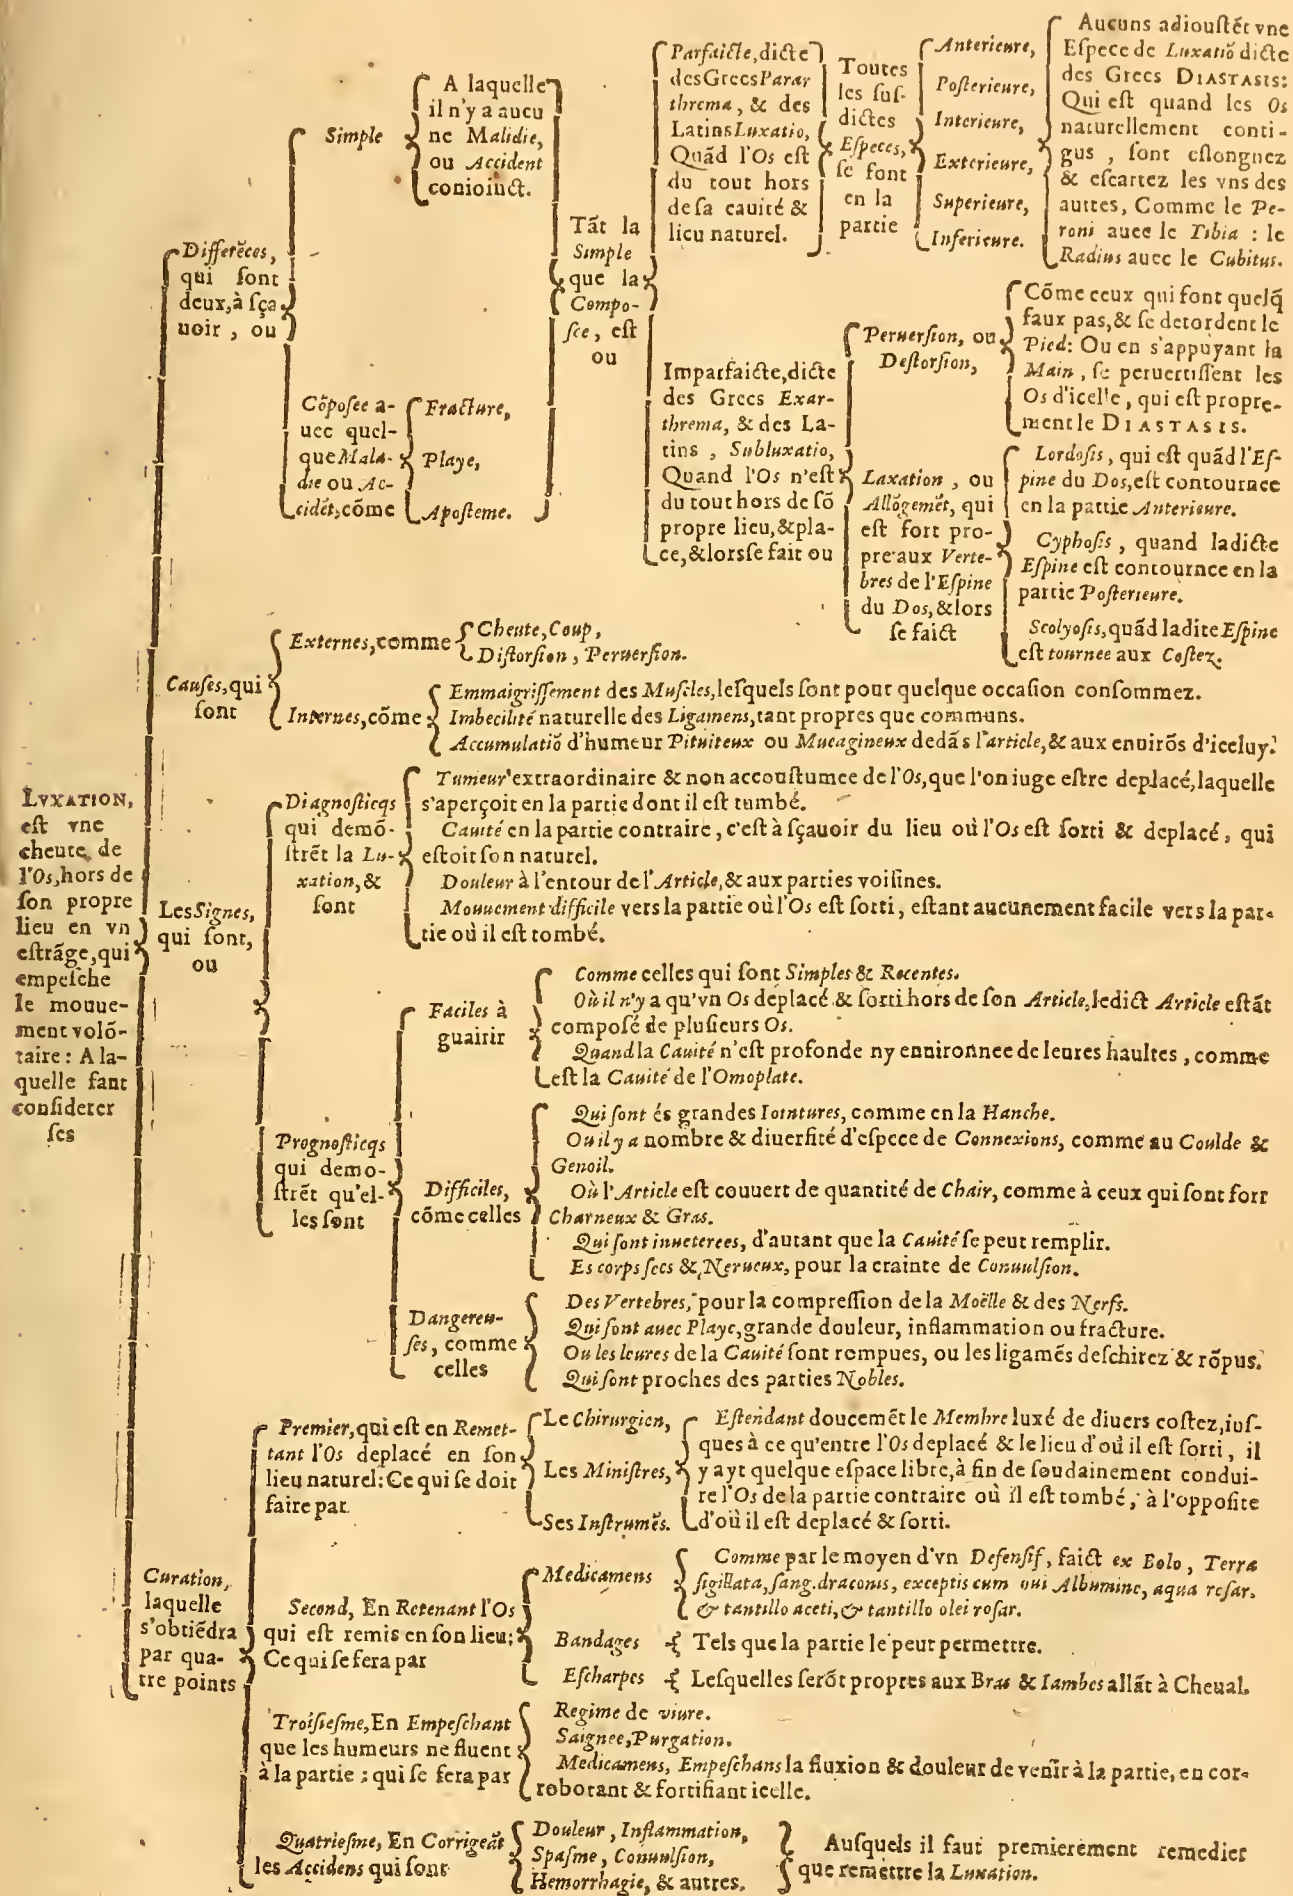 LVXATION,
eſt vne
cheute de
l'Os, hors de
ſon propre
lieu en vn
eſtrãge, qui
empeſche
le mouue-
ment volõ-
taire : A la-
quelle faut
conſiderer
ſes
Differẽces,
qui ſont
deux, à ſça
uoir, ou
Simple
A laquelle
il n'y a aucu
ne Malidie,
ou Accident
conioinct.
Cõpoſee a-
uec quel-
que Mala-
die ou Ac-
cidẽt, cõme
Fracture,
Playe,
Apoſteme.
Tãt la
Simple
que la
Compo-
ſee, eſt
ou
Parfaicte, dicte
des Grecs Parar
threma, & des
Latins Luxatio,
Quãd l'Os eſt
du tout hors
de ſa cauité &
lieu naturel.
Toutes
les ſuſ-
dictes
Eſpeces,
ſe font
en la
partie
Anterieure,
Poſterieure,
Interieure,
Exterieure,
Superieure,
Inferieure.
Aucuns adiouſtẽt vne
Eſpece de Luxatiõ dicte
des Grecs DIASTASIS:
Qui eſt quand les Os
naturellement conti-
gus, ſont eſlongnez
& eſcartez les vns des
auttes, Comme le Pe-
roni auec le Tibia : le
Radius auec le Cubitus.
Imparfaicte, dicte
des Grecs Exar-
threma, & des La-
tins, Subluxatio,
Quand l'Os n'eſt
du tout hors de ſõ
propre lieu, & pla-
ce, & lors ſe fait ou
Peruerſion, ou
Deſtorſion,
Cõme ceux qui font quelq̃
faux pas, & ſe detordent le
Pied: Ou en s'appuyant ſa
Main, ſe peruertiſſent les
Os d'icelle, qui eſt propre-
ment le DIASTASIS.
Laxation, ou
Allõgemẽt, qui
eſt fort pro-
pre aux Verte-
bres de l'Eſpine
du Dos, & lors
ſe faict
Lordoſis, qui eſt quãd l'Eſ-
pine du Dos, eſt contournee
en la pattie Anterieure.
Cyphoſis, quand ladicte
Eſpine eſt contournee en la
partie Poſterieure.
Scolyoſis, quãd ladite Eſpine
eſt tournee aux Coſtez.
Cauſes, qui
ſont
Externes, comme
Cheute, Coup,
Diſtorſion, Peruerſion.
Internes, cõme
Emmaigriſſement des Muſcles, leſquels ſont pour quelque occaſion conſommez.
Imbecilité naturelle des Ligamens, tant propres que communs.
Accumulatiõ d'humeur Pituiteux ou Mucagineux dedãs l'article, & aux enuirõs d'iceluy.
Les Signes,
qui ſont,
ou
Diagnoſticqs
qui demõ-
ſtrẽt la Lu-
xation, &
ſont
Tumeur extraordinaire & non accouſtumee de l'Os, que l'on iuge eſtre deplacé, laquelle
s'aperçoit en la partie dont il eſt tumbé.
Cauité en la partie contraire, c'eſt à ſçauoir du lieu où l'Os eſt ſorti & deplacé, qui
eſtoit ſon naturel.
Douleur à l'entour de l'Article, & aux parties voiſines.
Mouuement difficile vers la partie où l'Os eſt ſorti, eſtant aucunement facile vers la par-
tie où il eſt tombé.
Prognoſticqs
qui demo-
ſtrẽt qu'el-
les ſont
Faciles à
guairir
Comme celles qui ſont Simples & Recentes.
Où il n'y a qu'vn Os deplacé & ſorti hors de ſon Article, ledict Article eſtãt
compoſé de pluſieurs Os.
Quand la Cauité n'eſt profonde ny enuironnee de leures haultes, comme
eſt la Cauité de l'Omoplate.
Difficiles,
cõme celles
Qui ſont és grandes Iointures, comme en la Hanche.
Ou il y a nombre & diuerſité d'eſpece de Connexions, comme au Coulde &
Genoil.
Où l'Article eſt couuert de quantité de Chair, comme à ceux qui ſont fort
Charneux & Gras.
Qui ſont inueterees, d'autant que la Cauité ſe peut remplir.
Es corps ſecs & Nerueux, pour la crainte de Conuulſion.
Dangereu-
ſes, comme
celles
Des Vertebres, pour la compreſſion de la Moëlle & des Nerfs.
Qui ſont auec Playe, grande douleur, inflammation ou fracture.
Ou les leures de la Cauité ſont rompues, ou les ligamẽs deſchirez & rõpus.
Qui ſont proches des parties Nobles.
Curation,
laquelle
s'obtiẽdra
par qua-
tre points
Premier, qui eſt en Remet-
tant l'Os deplacé en ſon
lieu naturel: Ce qui ſe doit
faire par
Le Chirurgien,
Les Miniſtres,
Ses Inſtrumẽs.
Eſtendant doucemẽt le Membre luxé de diuers coſtez, iuſ-
ques à ce qu'entre l'Os deplacé & le lieu d'où il eſt ſorti, il
y ayt quelque eſpace libre, à fin de ſoudainement condui-
re l'Os de la partie contraire où il eſt tombé, à l'oppoſite
d'où il eſt deplacé & ſorti.
Second, En Retenant l'Os
qui eſt remis en ſon lieu;
Ce qui ſe fera par
Medicamens
Comme par le moyen d'vn Defenſif, faict ex Bolo, Terra
ſigillata, ſang. draconis, exceptis cum oui Albumine, aqua roſar.
& tantillo aceti, & tantillo olei roſar.
Bandages
Tels que la partie le peut permettre.
Eſcharpes
Leſquelles ſerõt propres aux Bras & Iambes allãt à Cheual.
Troiſieſme, En Empeſchant
que les humeurs ne fluent
à la partie : qui ſe fera par
Regime de viure.
Saignee, Purgation.
Medicamens, Empeſchans la fluxion & douleur de venir à la partie, en cor-
roborant & fortifiant icelle.
Quatrieſme, En Corrigeãt
les Accidens qui ſont
Douleur, Inflammation,
Spaſme, Conuulſion,
Hemorrhagie, & autres.
Auſquels il faut premierement remedier
que remettre la Luxation.